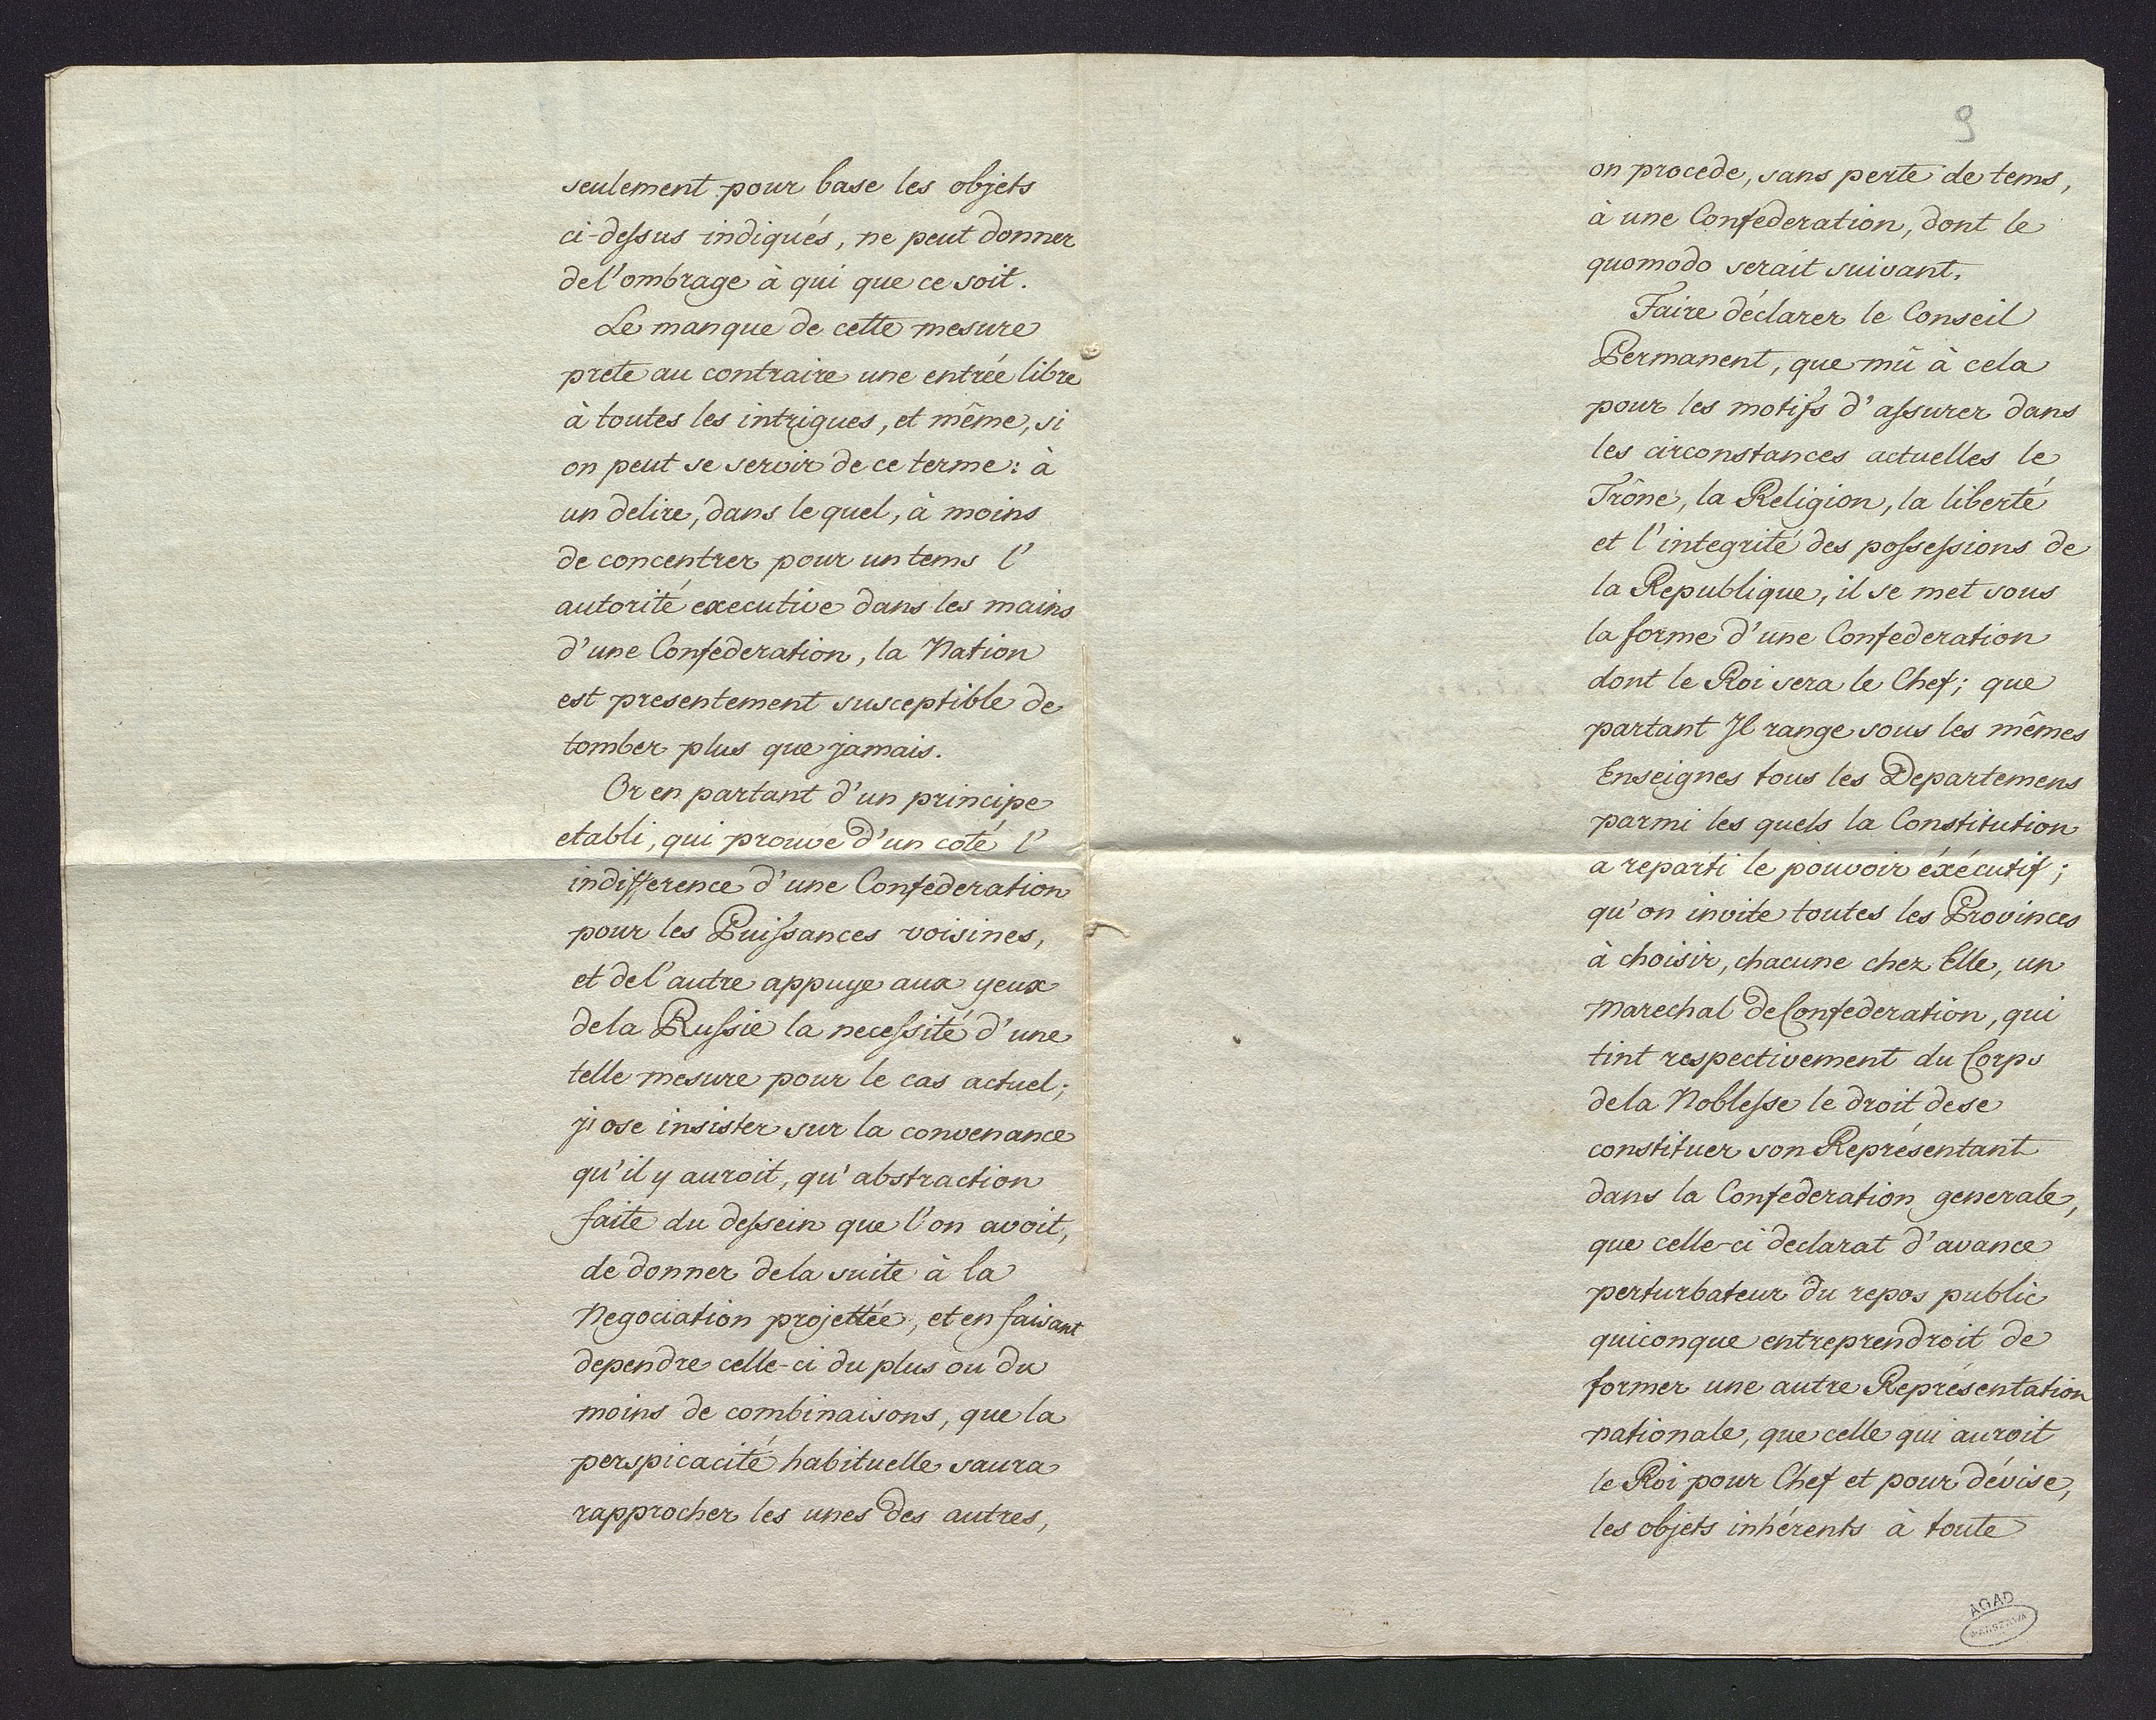 seulement pour base les objets
ci-dessus indiqués, ne peut donner
de l'ombrage à qui que ce soit.
Le manque de cette mesure
prete au contraire une entrée libre
à toutes les intrigues, et même, si
on peut se servir de ce terme: à
un delire, dans le quel, à moins
de concentrer pour un tems l'
autorité executive dans les mains
d'une Confederation, la Nation
est presentement susceptible de
tomber plus que jamais.
Or en partant d'un principe
etabli, qui prouve d'un coté l'
indifference d'une Confederation
pour les Puissances voisines,
et de l'autre appuye aux yeux
de la Russie la necessité d'une
telle mesure pour le cas actuel;
j'ose insister sur la convenance
qu'il y auroit, qu'abstraction
faite du dessein que l'on avoit,
de donner de la suite à la
Negociation projettée, et en faisant
dependre celle-ci du plus ou du
moins de combinaisons, que la
perspicacité habituelle saura
rapprocher les unes des autres,
9
on procede, sans perte de tems,
à une Confederation, dont le
quomodo serait suivant.
Faire déclarer le Conseil
Permanent, que mû à cela
pour les motifs d'assurer dans
les circonstances actuelles le
Trône, la Religion, la liberté
et l'integrité des possessions de
la Republique, il se met sous
la forme d'une Confederation
dont le Roi sera le Chef; que
partant Il range sous les mêmes
Enseignes tous les Departemens
parmi les quels la Constitution
a reparti le pouvoir éxécutif;
qu'on invite toutes les Provinces
à choisir, chacune chez Elle, un
Marechal de Confederation, qui
tint respectivement du Corps
de la Noblesse le droit de se
constituer son Représentant
dans la Confederation generale,
que celle-ci declarat d'avance
perturbateur du repos public
quiconque entreprendroit de
former une autre Représentation
nationale, que celle qui auroit
le Roi pour Chef et pour dévise,
les objets inhérents à toute
AGAD
WARSZAWA